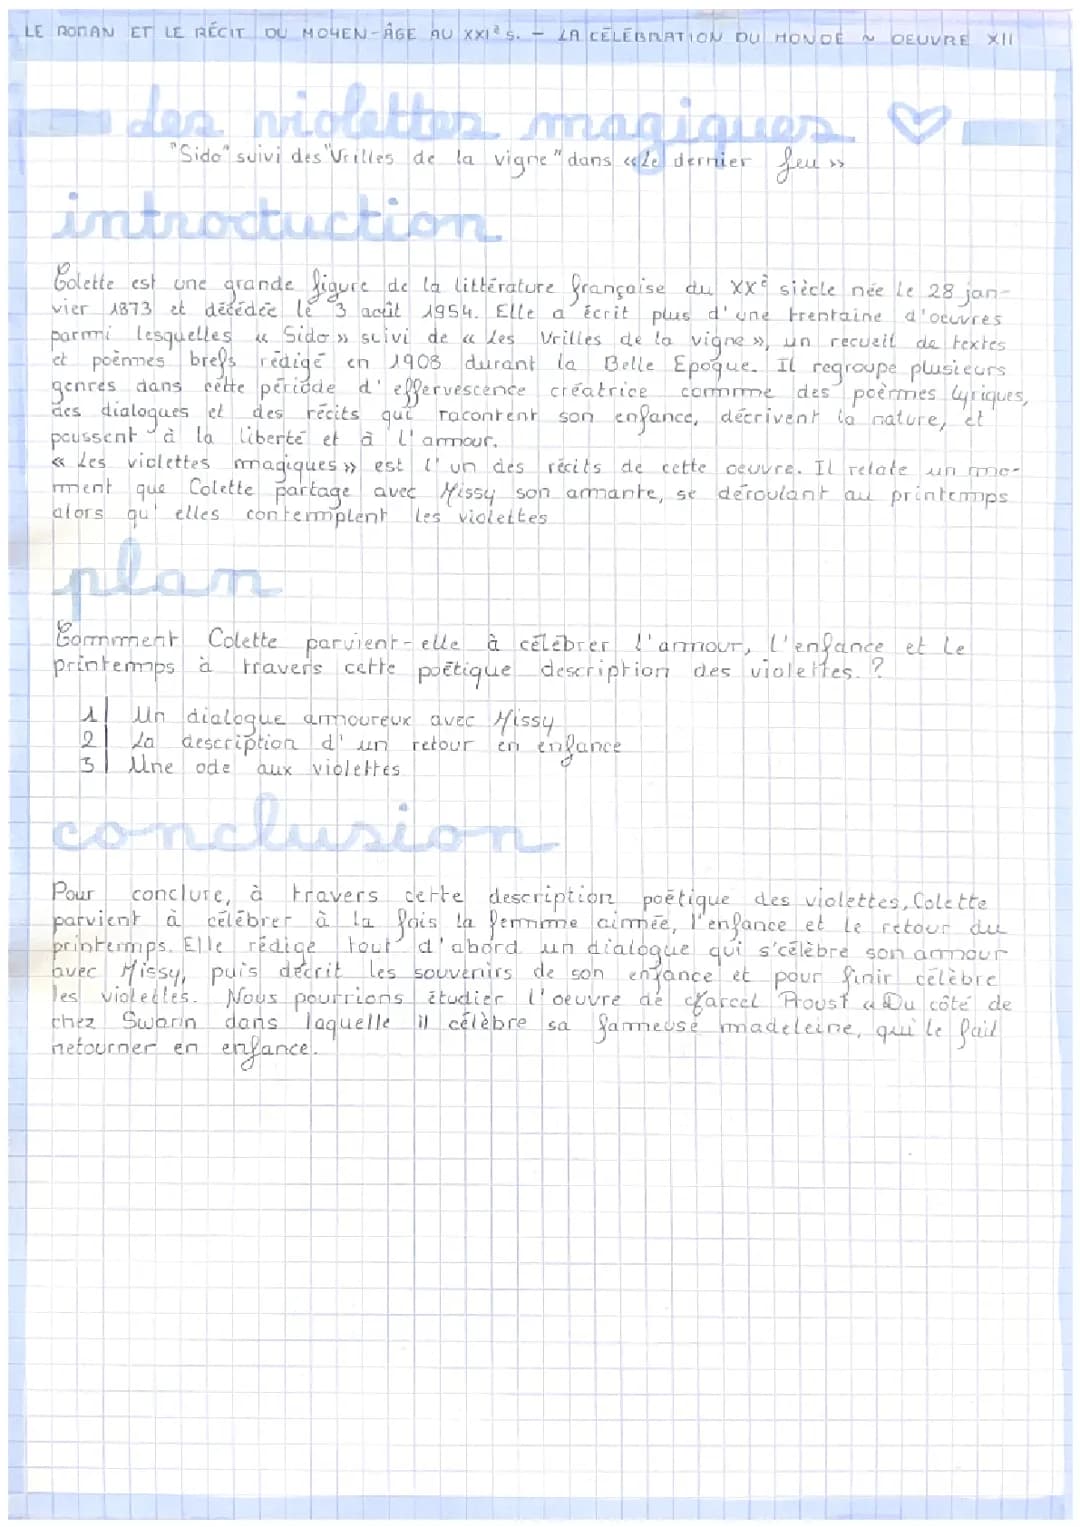 LE ROMAN ET LE RÉCIT DU MOYEN-ÂGE AU XXIᵉ S. - LA CÉLÉBRATION DU MONDE ~ OEUVRE XII
des violettes magiques ♡
"Sido" suivi des "Vrilles de la vigne" dans « Le dernier feu »
introduction
Colette est une grande figure de la littérature française du XXᵉ siècle née le 28 jan-
vier 1873 et décédée le 3 août 1954. Elle a écrit plus d'une trentaine d'oeuvres
parmi lesquelles « Sido » suivi de « Les Vrilles de la vigne », un recueil de textes
et poèmes brefs rédigé en 1908 durant la Belle Epoque. Il regroupe plusieurs
genres dans cette période d'effervescence créatrice comme des poèmes lyriques,
des dialogues et des récits qui racontent son enfance, décrivent la nature, et
poussent à la liberté et à l'amour.
« Les violettes magiques » est l'un des récits de cette oeuvre. Il relate un mo-
ment que Colette partage avec Missy son amante, se déroulant au printemps
alors qu'elles contemplent les violettes
plan
Comment Colette parvient-elle à célébrer l'amour, l'enfance et le
printemps à travers cette poétique description des violettes ?
1| Un dialogue amoureux avec Missy
2| La description d'un retour en enfance
3| Une ode aux violettes
conclusion
Pour conclure, à travers cette description poétique des violettes, Colette
parvient à célébrer à la fois la femme aimée, l'enfance et le retour du
printemps. Elle rédige tout d'abord un dialogue qui s'célèbre son amour
avec Missy, puis décrit les souvenirs de son enfance et pour finir célèbre
les violettes. Nous pourrions étudier l'oeuvre de Marcel Proust « Du côté de
chez Swann dans laquelle il célèbre sa fameuse madeleine, qui le fait
retourner en enfance.